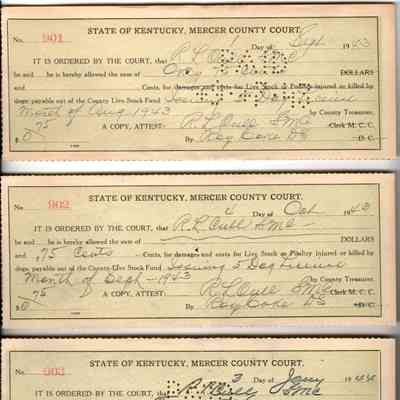 STATE OF KENTUCKY, MERCER COUNTY COURT.
No. 901 1 Day of Sept 1943
IT IS ORDERED BY THE COURT, that R L Cull SMC
he and be and is hereby allowed the sum of Only 75 Cents DOLLARS
and Cents, for damages and costs for Live Stock or Poultry injured or killed by
dogs, payable out of the County Live Stock Fund Issuing 5 Dog License by County Treasurer.
Month of Aug 1943
A COPY, ATTEST: R L Cull SMC Clerk M. C. C.
$0 75 By Ray Cake DC D. C.
STATE OF KENTUCKY, MERCER COUNTY COURT.
No. 902 4 Day of Oct 1943
IT IS ORDERED BY THE COURT, that R. L. Cull SMC
he and be and is hereby allowed the sum of DOLLARS
and .75 Cents Cents, for damages and costs for Live Stock or Poultry injured or killed by
dogs, payable out of the County Live Stock Fund Issuing 5 Dog License by County Treasurer.
Month of Sept - 1943
A COPY, ATTEST: R L Cull Clerk M. C. C.
$0 75 By Ray Cake DC D. C.
STATE OF KENTUCKY, MERCER COUNTY COURT.
No. 903 3 Day of Jany 19
IT IS ORDERED BY THE COURT, that R L Cull SMC